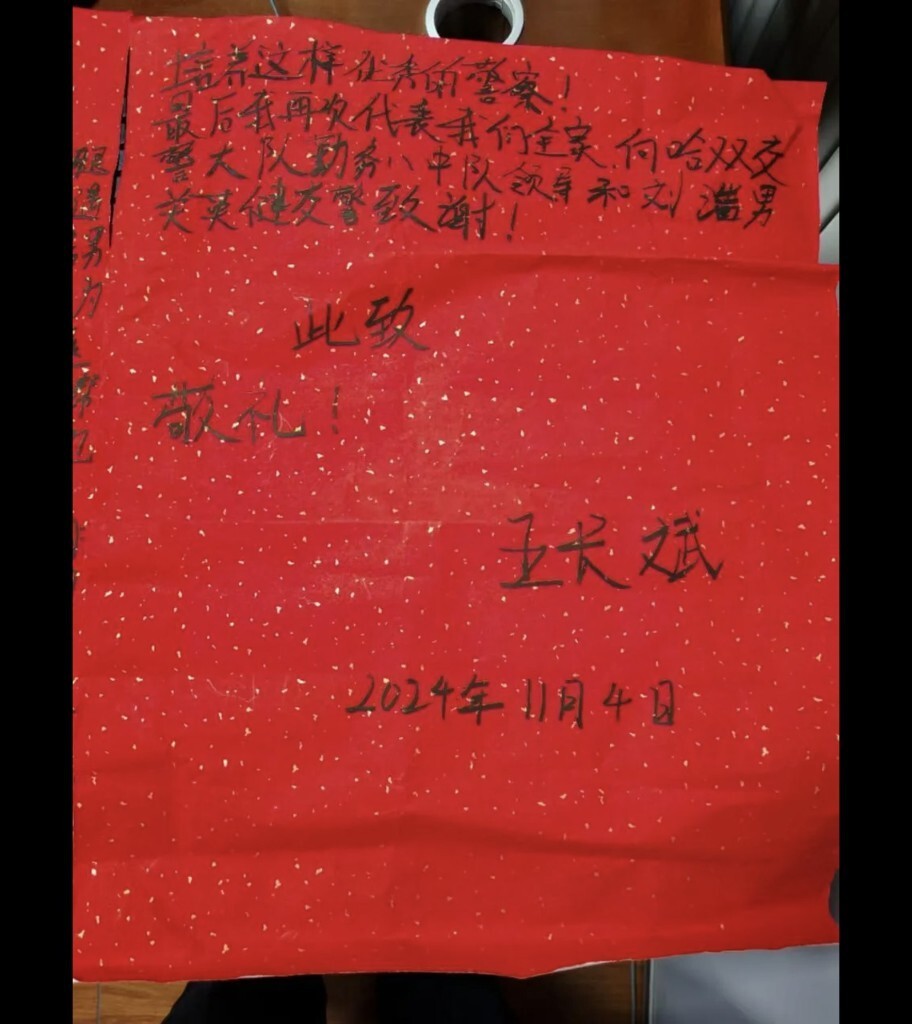 培养这样优秀的警察!
最后我再次代表我们全家,向哈双交
警大队勤务八中队领导和刘满男
关英健交警致谢!
此致
敬礼!
王长斌
2024年11月4日
男
为